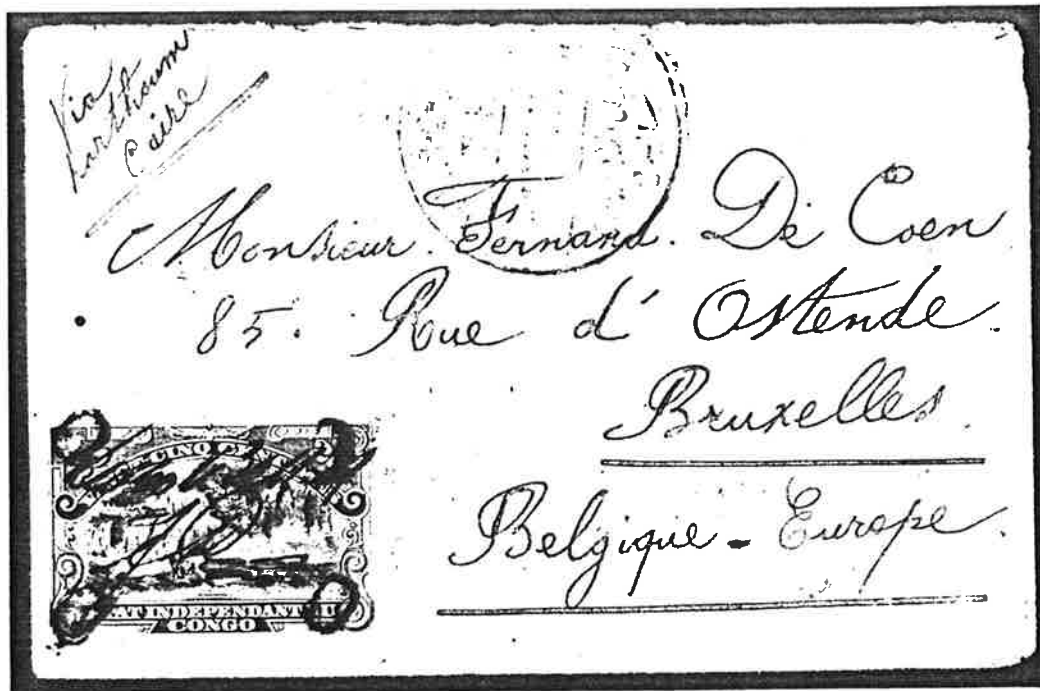 Via
Karthoum
Caire
Monsieur. Fernand. De Coen
85. Rue d' Ostende.
Bruxelles.
Belgique - Europe.
CINQ
AT INDEPENDANT
CONGO